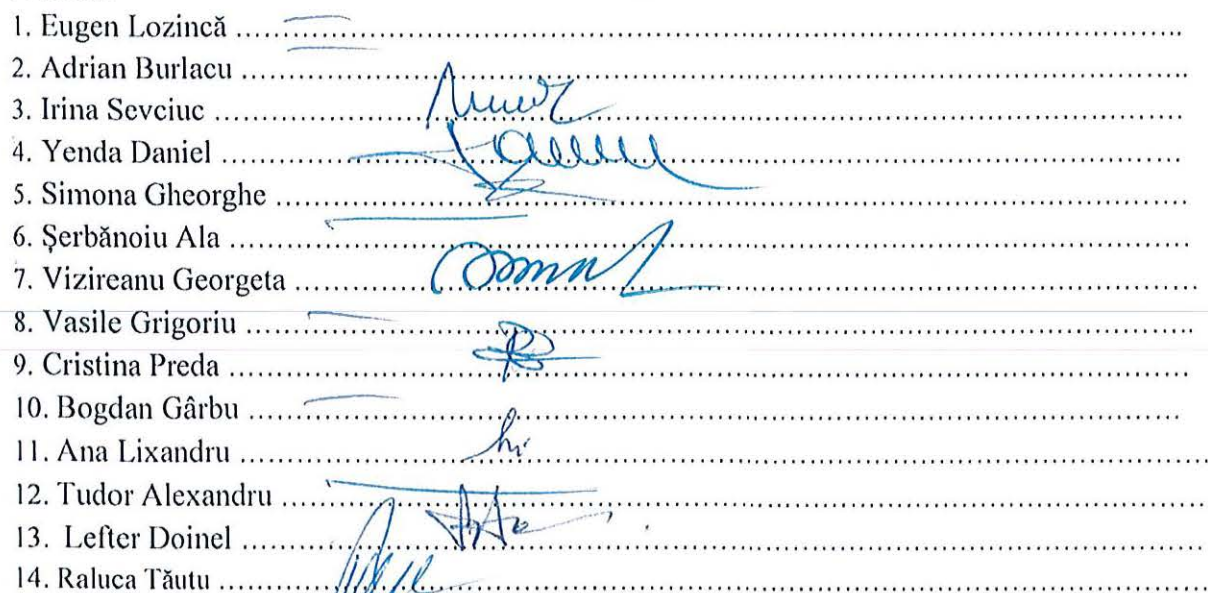 1. Eugen Lozincă ....................
2. Adrian Burlacu ....................
3. Irina Sevciuc ....................
4. Yenda Daniel ....................
5. Simona Gheorghe ....................
6. Șerbănoiu Ala ....................
7. Vizireanu Georgeta ....................
8. Vasile Grigoriu ....................
9. Cristina Preda ....................
10. Bogdan Gârbu ....................
11. Ana Lixandru ....................
12. Tudor Alexandru ....................
13. Lefter Doinel ....................
14. Raluca Tăutu ....................